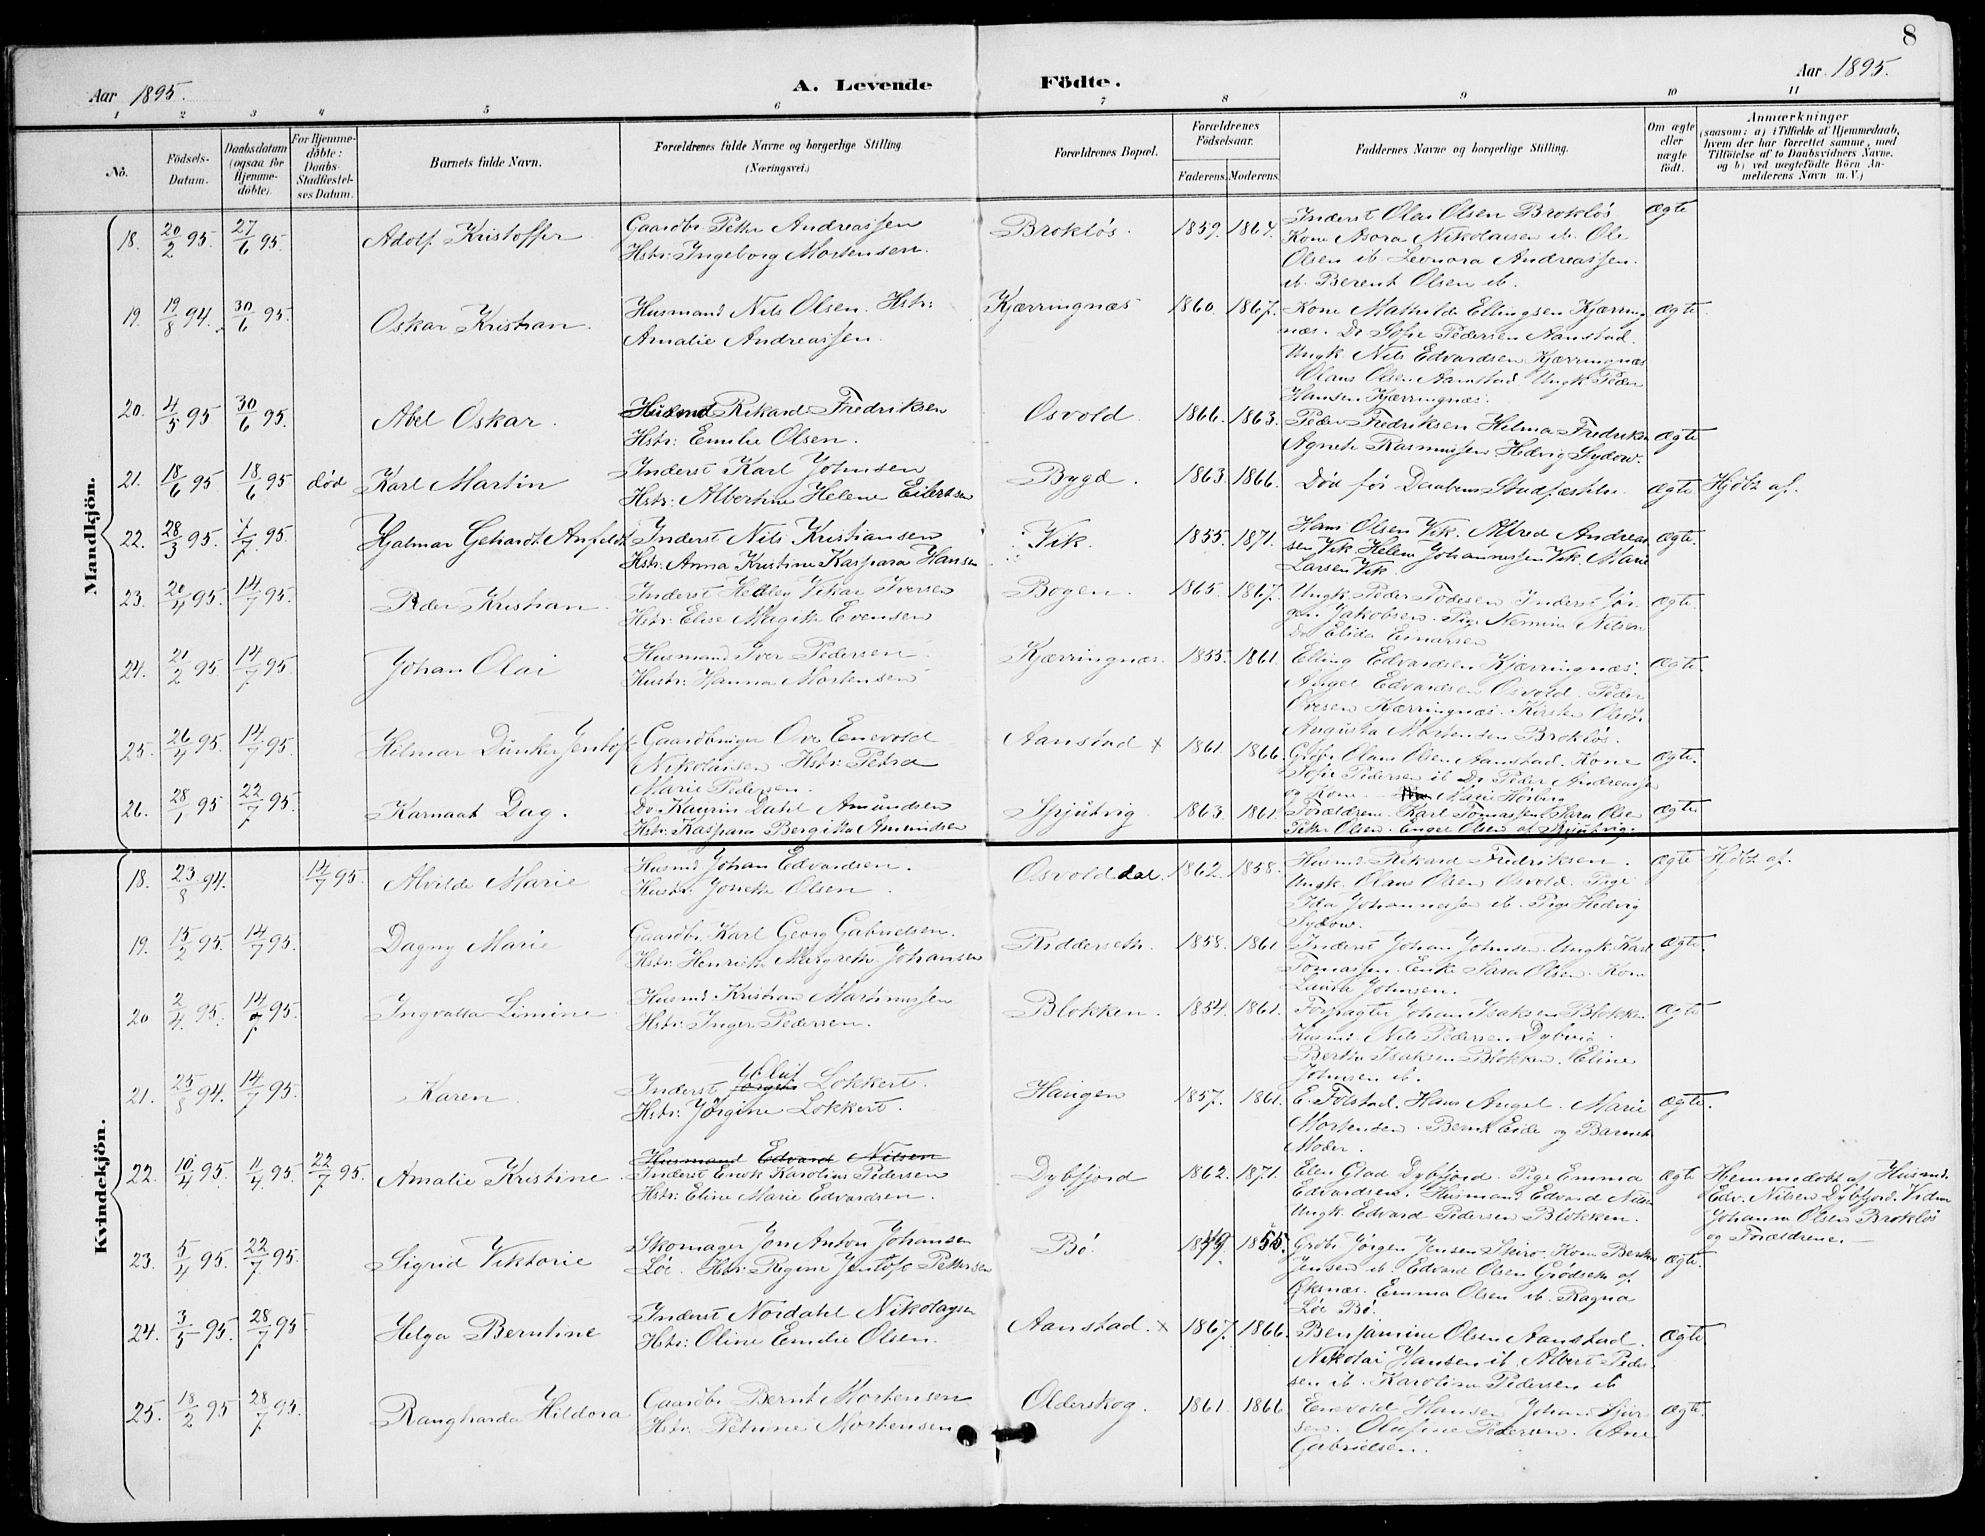 8
Aar 1895.
A. Levende Födte.
Aar 1895.
1 2 3 4 5 6 7 8 9 10 11
No.
Födsels-Datum.
Daabsdatum (ogsaa for Hjemme-döbte).
For Hjemme-döbte: Daabs Stadfæstel-ses Datum.
Barnets fulde Navn.
Forældrenes fulde Navne og borgerlige Stilling (Næringsvei.)
Forældrenes Bopæl.
Forældrenes Födselsaar.
Faderens. Moderens.
Faddernes Navne og borgerlige Stilling.
Om ægte eller uægte födt.
Anmærkninger
(saasom: a) i Tilfælde af Hjemmedaab, hvem der har forrettet samme, med Tilföielse af to Daabsvidners Navne, og b) ved uægtefödte Börn An-melderens Navn m. V.)
Mandkjön.
18. 20/2 95. 27/6 95. Adolf Kristoffer Gaardbr. Petter Andreassen Brokløs. 1859. 1864. Inderst Olai Olsen Brokløs Ægte
Hstr: Ingeborg Mortensen. Kone Asora Nikolaisen ib. Ole
Olsen ib. Leonora Andreassen.
ib. Berent Olsen ib.
19. 19/8 94. 30/6 95. Oskar Kristian. Husmand Nils Olsen. Hstr: Kjærringnæs 1860. 1867. Kone Mathilde Ellingsen Kjærring Ægte
Amalie Andreassen. næs. Do Sofie Pedersen Aanstad.
Ungk. Nils Edvardsen Kjærringnæs
Olaus Olsen Aanstad. Ungk Peder
Hansen Kjærringnæs.
20. 4/5 95 30/6 95. Abel Oskar. Husmd Rikard Fredriksen Osvold. 1866. 1863. Peder Fredriksen Hilma Fredriks Ægte
Hstr: Emilie Olsen. Agnete Rasmussen Hedvig Sydow.
21. 18/6 95 18/6 95 død Karl Martin Inderst Karl Johnsen Bygd. 1863. 1866. Død før Daabens Stadfæstelse. Ægte Hjdbt af.
Hstr: Albertine Helene Eilertsen
22. 28/3 95. 7/7 95. Hjalmar Gehardt Anfeldt Inderst Nils Kristiansen Vik. 1855. 1871. Hans Olsen Vik. Alfred Andreas Ægte.
Hstr: Anna Kristine Kaspara Hansen sen Vik Helene Johannessen Vik. Marie
Larsen Vik
23. 20/4 95. 14/7 95. Peder Kristian. Inderst Hedley Vikar Iversen Bogen. 1865. 1867. Ungk Peder Todesen Inderst Jør Ægte.
Hstr: Elise Margitte Evensen gen Jakobsen. Pige Nilsen
Do Elida Einarsen
24. 21/2 95 14/7 95. Johan Olai Husmand Iver Pedersen. Kjærringnæs. 1855. 1861. Elling Edvardsen Kjærringnæs. Ægte.
Hustr: Hanna Mortensen Angel Edvardsen Osvold. Peder
Ovesen Kærringnæs. Kirsten Olsen
Augusta Mortensen Brokløs.
25. 26/4 95. 14/7 95. Hilmar Dunker Jentoft Gaardbruger Ove Enevold Aanstad × 1861. 1866. Grdbr Olaus Olsen Aanstad. Kone Ægte.
Nikolaisen. Hstr: Petra Sofie Pedersen ib Do Peder Andreassen
Marie Pedersen. og Kone. Marie Høiberg
26. 28/1 95 22/7 95. Karnaat Dag. Do. Kaurin Dahl Amundsen Spjutvig 1863. 1861. Forældrene. Karl Tomassen, Sara Olsen Ægte.
Hstr: Kaspara Bergitta Amundsen Petter Olsen. Engel Olsen af Spjutvig.
Kvindekjön.
18. 23/8 94. 14/7 95. Alvilde Marie Husmd Johan Edvardsen. Osvolddal. 1862. 1858. Husmd. Rikard Fredriksen. Ægte Hjdbt af.
Hustr. Jonette Olsen. Ungk. Olaus Olsen Osvold. Pige
Ida Johannessen ib. Pige Hedvig
Sydow.
19. 15/2 95. 14/7 95. Dagny Marie Gaardbr. Karl Georg Gabrielsen. Ridderseth. 1858. 1861. Inderst Johan Johnsen Ungk Karl Ægte.
Hstr: Henriette Margrethe Johansen Tomassen. Enke Sara Olsen. Kone
Laura Johnsen.
20 2/4 95. 14/7 95. Ingvalda Limine. Husmd. Kristian Martinussen Blokken. 1854. 1861. Forpagter Johan Isaksen Blokken Ægte
Hstr: Inger Pedersen. Husmd. Nils Pedersen Dybvig.
Bertin Isaksen Blokken. Eline
Johnsen ib.
21. 25/8 94. 14/7 95. Karen. Inderst Lokkert. Haugen 1857. 1861. E. Folstad. Hans Angel. Marie Ægte.
Hstr: Jørgine Lokkert. Mortensen. Bernt Eide og Barnets
Moder.
22. 10/4 95. 11/4 95. 22/7 95. Amalie Kristine Husmand Edvard Nilsen
Inderst Enok Karolius Pedersen Dybfjord 1862. 1871. Elen Glad Dybfjord. Pige Emma Ægte Hemmedøbt af Husmd
Hstr: Eline Marie Edvardsen. Edvardsen. Husmand Edvard Nilsen Edv. Nilsen Dybfjord. Vidner
Ungk. Edvard Pedersen Blokken. Johanna Olsen Brokløs
og Forældrene.
23. 5/4 95. 22/7 95. Sigrid Viktorie Skomager Jon Anton Johansen Bø. 1855. Grdbr Jørgen Jensen Skiro. Kone Berthe Ægte.
Løe. Hstr: Regine Jentoft Pettersen Jensen ib. Edvard Olsen Grødseth af
Øksnæs. Emma Olsen ib. Ragna
Løe Bø.
24. 3/5 95. 28/7 95 Helga Berntine Inderst Nordahl Nikolaysen Aanstad. × 1867. 1866. Benjamine Olsen Aanstad. Ægte
Hstr: Oline Emilie Olsen. Nikolai Hansen ib. Albert Peder
sen ib. Karoline Pedersen ib
25. 18/2 95 28/7 95. Rangharda Hildora Gaardbr Bernt Mortensen Olderskog. 1861. 1866 Enevold Hansen Johan Ægte.
Hstr: Petrine Mortensen sen. Olufine Pedersen. Ane
Gabrielsen.